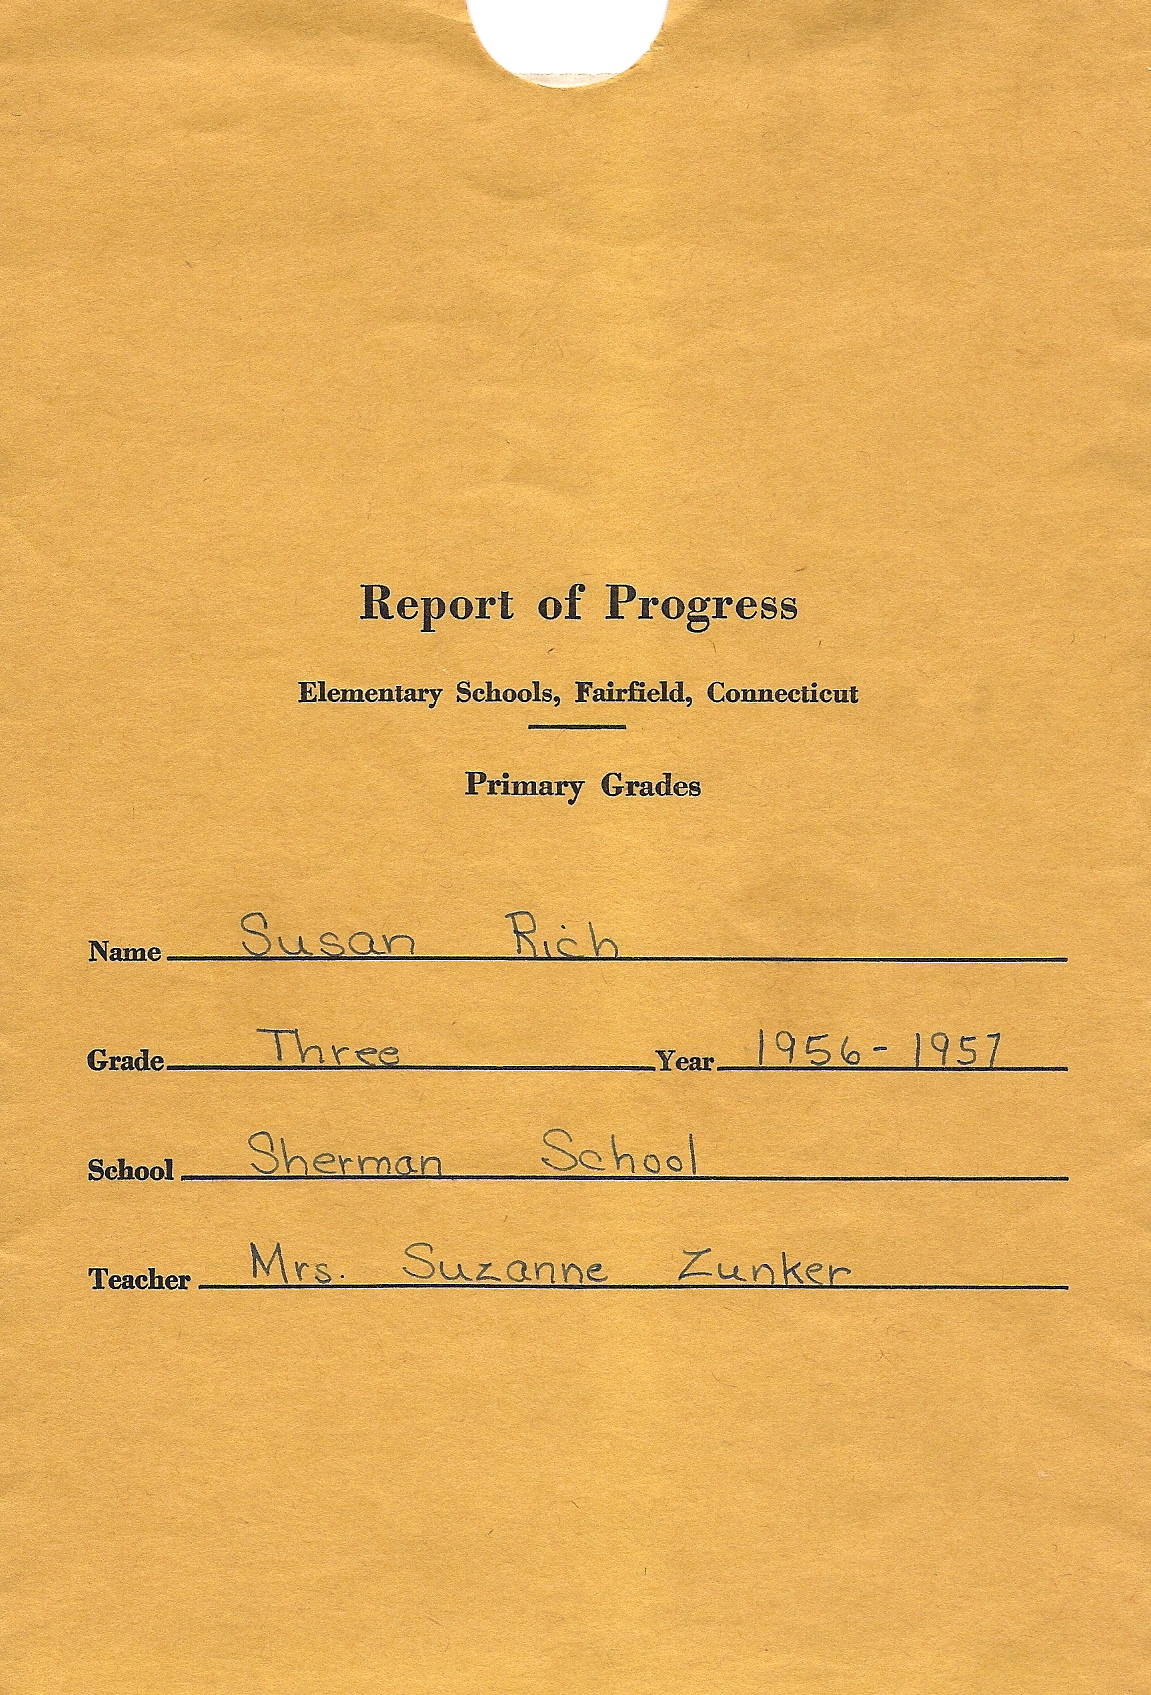 Report of Progress
Elementary Schools, Fairfield, Connecticut
Primary Grades
Name Susan Rich
Grade Three Year 1956-1957
School Sherman School
Teacher Mrs. Suzanne Zunker